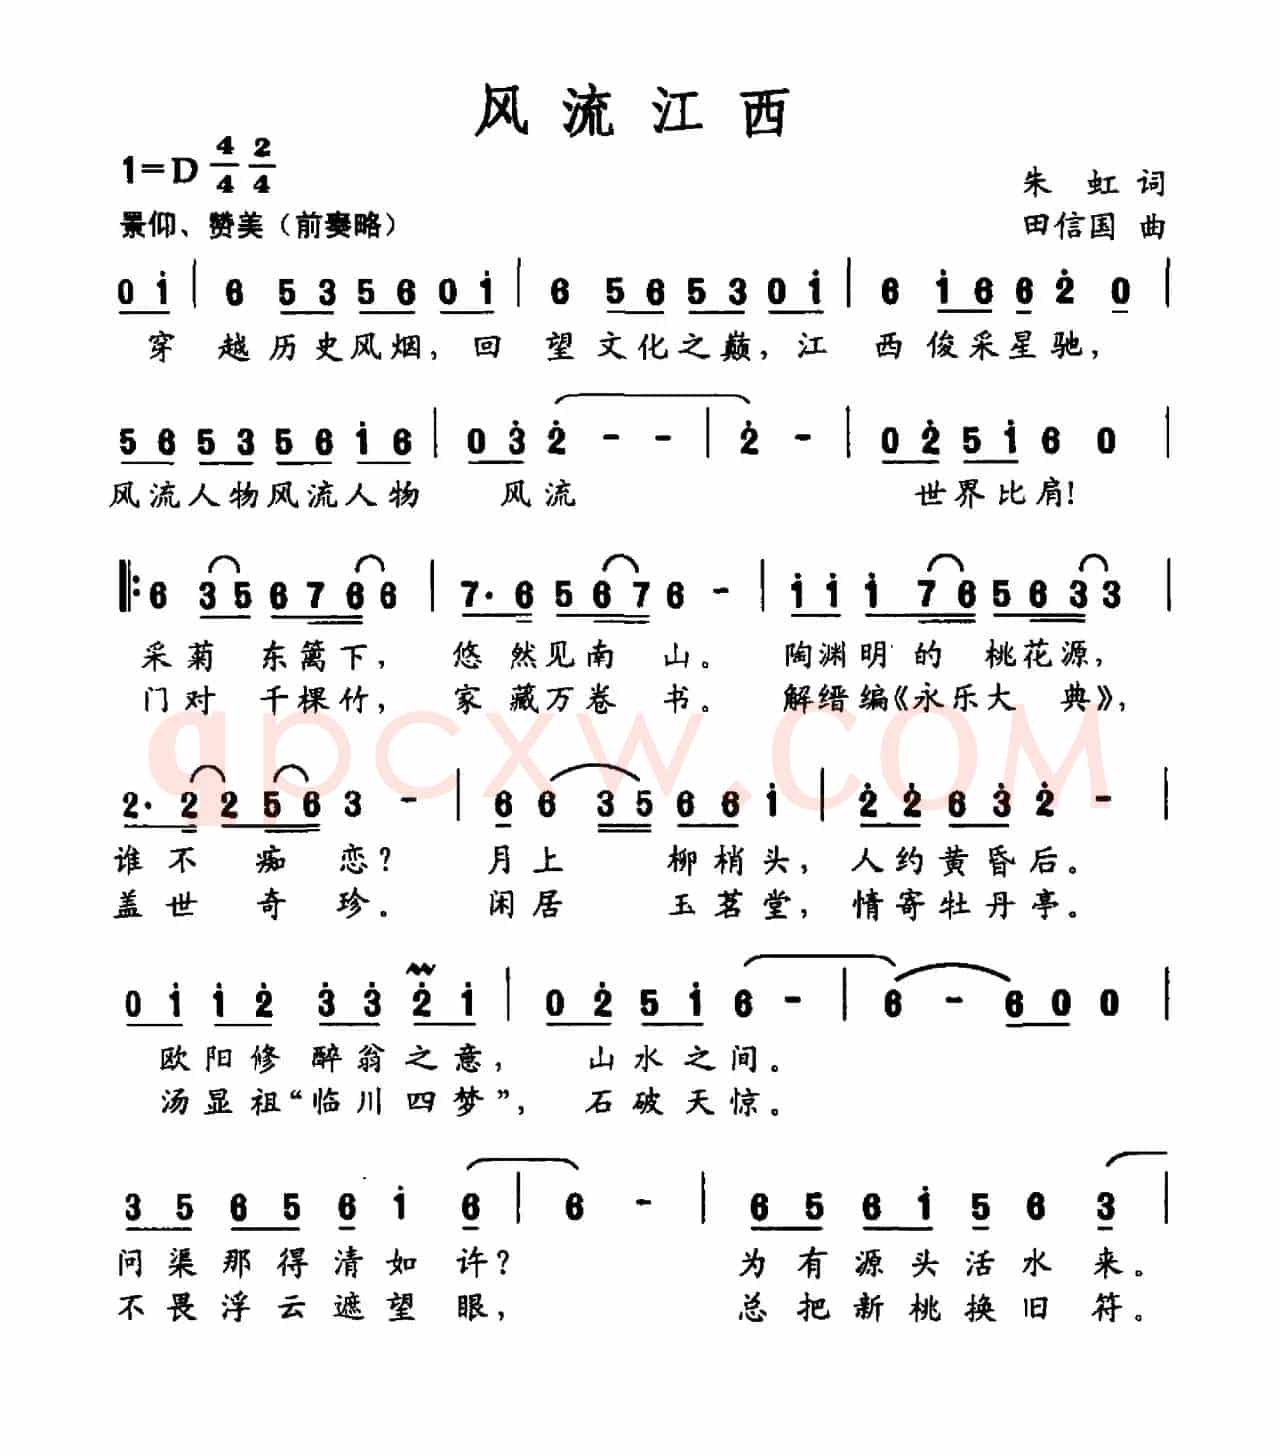 风流江西
1=D 4/4 2/4
朱 虹 词
景仰、赞美（前奏略）
田信国 曲
0 i | 6 5 3 5 6 0 i | 6 5 6 5 3 0 i | 6 i 6 6 2̇ 0 |
穿 越历史风烟,回 望文化之巅,江 西俊采星驰,
5 6 5 3 5 6 i 6 | 0 3̇ 2̇ - - | 2̇ - | 0 2̇ 5 i 6 0 |
风流人物风流人物 风流 世界比肩!
‖: 6 3 5 6 7 6 6 | 7· 6 5 6 7 6 - | i i i 7 6 5 6 3 3 |
采菊 东篱下, 悠 然见南 山。 陶渊明的 桃花源,
门对 千棵竹, 家 藏万卷 书。 解缙编《永乐大 典》,
qpcxw.COM
2· 2 2 5 6 3 - | 6 6 3 5 6 6 i | 2̇ 2̇ 6 3̇ 2̇ - |
谁不 痴 恋? 月上 柳梢头, 人约黄昏后。
盖世 奇 珍。 闲居 玉茗堂, 情寄牡丹亭。
0 i i 2̇ 3̇ 3̇ 2̇ i | 0 2̇ 5 i 6 - | 6 - 6 0 0 |
欧阳修 醉翁之意, 山水之间。
汤显祖“临川四梦”, 石破天惊。
3 5 6 5 6 i 6 | 6 - | 6 5 6 i 5 6 3 |
问渠那得清如 许? 为有源头活水来。
不畏浮云遮望 眼, 总把新桃换旧符。